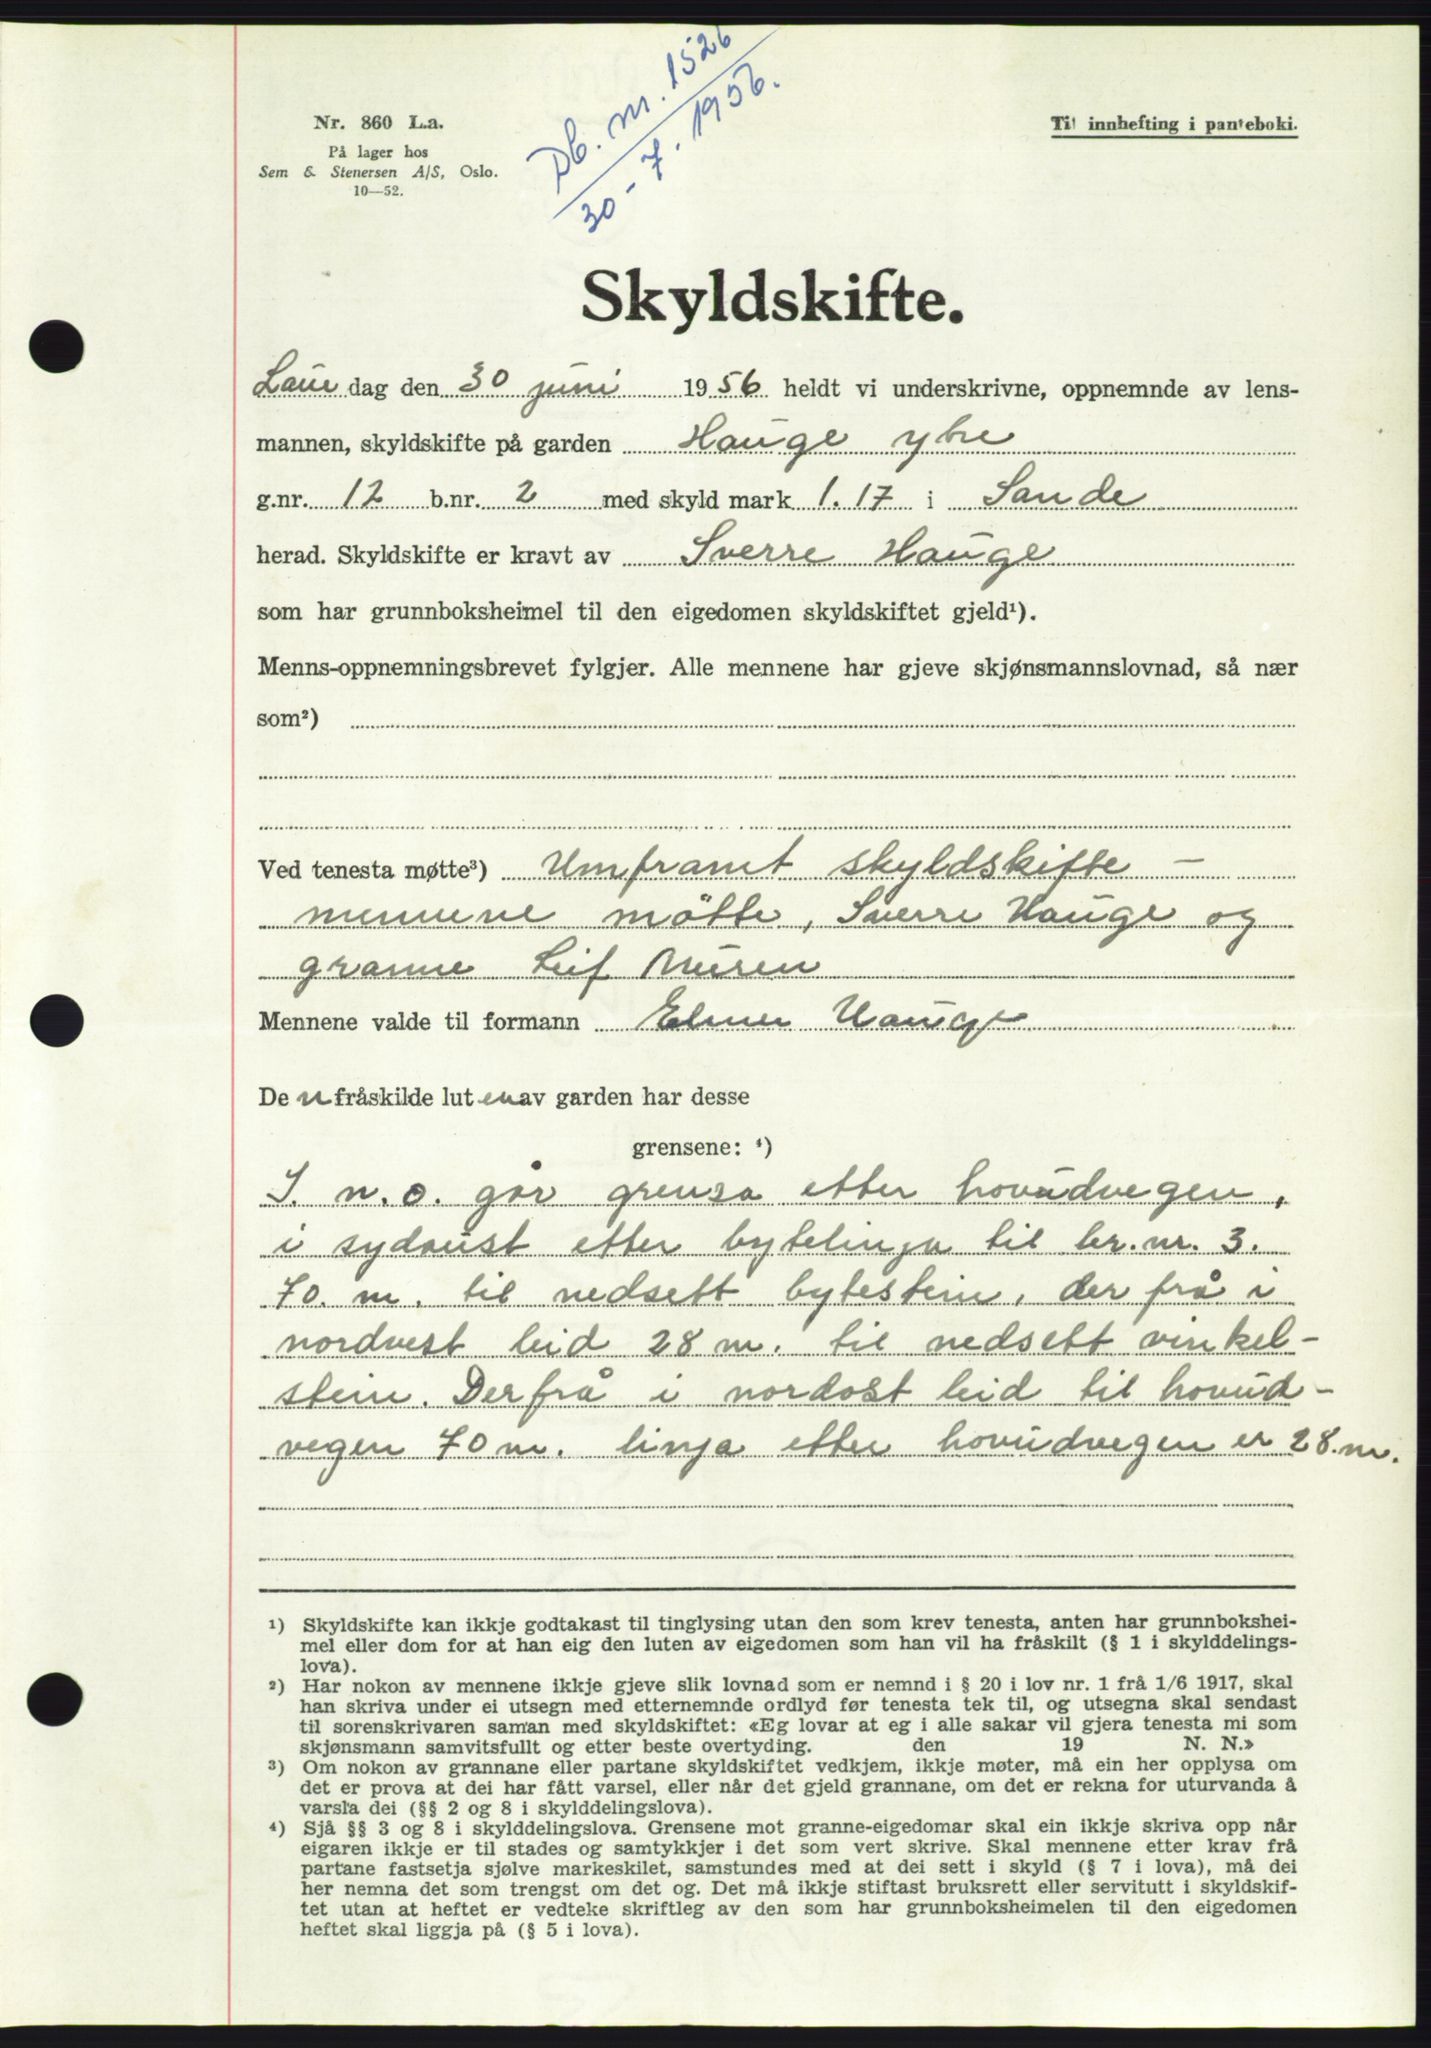 Db. nr. 1526
30-7.1956.
Nr. 860 L.a.
På lager hos
Sem & Stenersen A/S, Oslo.
10—52.
Til innhefting i panteboki.
Skyldskifte.
Laur dag den 30 juni 1956 heldt vi underskrivne, oppnemnde av lens-
mannen, skyldskifte på garden Hauge ytre
g.nr. 12 b.nr. 2 med skyld mark 1.17 i Sande
herad. Skyldskifte er kravt av Sverre Hauge
som har grunnboksheimel til den eigedomen skyldskiftet gjeld¹).
Menns-oppnemningsbrevet fylgjer. Alle mennene har gjeve skjønsmannslovnad, så nær
som²)
Ved tenesta møtte³) Umframt skyldskifte -
mennene mötte, Sverre Hauge og
granne Leif Muren
Mennene valde til formann Elmer Hauge
De n fråskilde lut en av garden har desse
grensene: ⁴)
I. n.o. går grensa etter hovudvegen,
i sydaust etter bytelinja til br.nr. 3.
70. m. til nedsett bytestein, der frå i
nordvest leid 28 m. til nedsett vinkel-
stein. Derfrå i nordost leid til hovud-
vegen 70 m. linja etter hovudvegen er 28.m.
¹) Skyldskifte kan ikkje godtakast til tinglysing utan den som krev tenesta, anten har grunnbokshei-
mel eller dom for at han eig den luten av eigedomen som han vil ha fråskilt (§ 1 i skylddelings-
lova).
²) Har nokon av mennene ikkje gjeve slik lovnad som er nemnd i § 20 i lov nr. 1 frå 1/6 1917, skal
han skriva under ei utsegn med etternemnde ordlyd før tenesta tek til, og utsegna skal sendast
til sorenskrivaren saman med skyldskiftet: «Eg lovar at eg i alle sakar vil gjera tenesta mi som
skjønsmann samvitsfullt og etter beste overtyding. den 19 N. N.»
³) Om nokon av grannane eller partane skyldskiftet vedkjem, ikkje møter, må ein her opplysa om
det er prova at dei har fått varsel, eller når det gjeld grannane, om det er rekna for uturvanda å
varsla dei (§§ 2 og 8 i skylddelingslova).
⁴) Sjå §§ 3 og 8 i skylddelingslova. Grensene mot granne-eigedomar skal ein ikkje skriva opp når
eigaren ikkje er til stades og samtykkjer i det som vert skrive. Skal mennene etter krav frå
partane fastsetja sjølve markeskilet, samstundes med at dei sett i skyld (§ 7 i lova), må dei
her nemna det som trengst om det og. Det må ikkje stiftast bruksrett eller servitutt i skyldskif-
tet utan at heftet er vedteke skriftleg av den som har grunnboksheimelen til den eigedomen
heftet skal liggja på (§ 5 i lova).